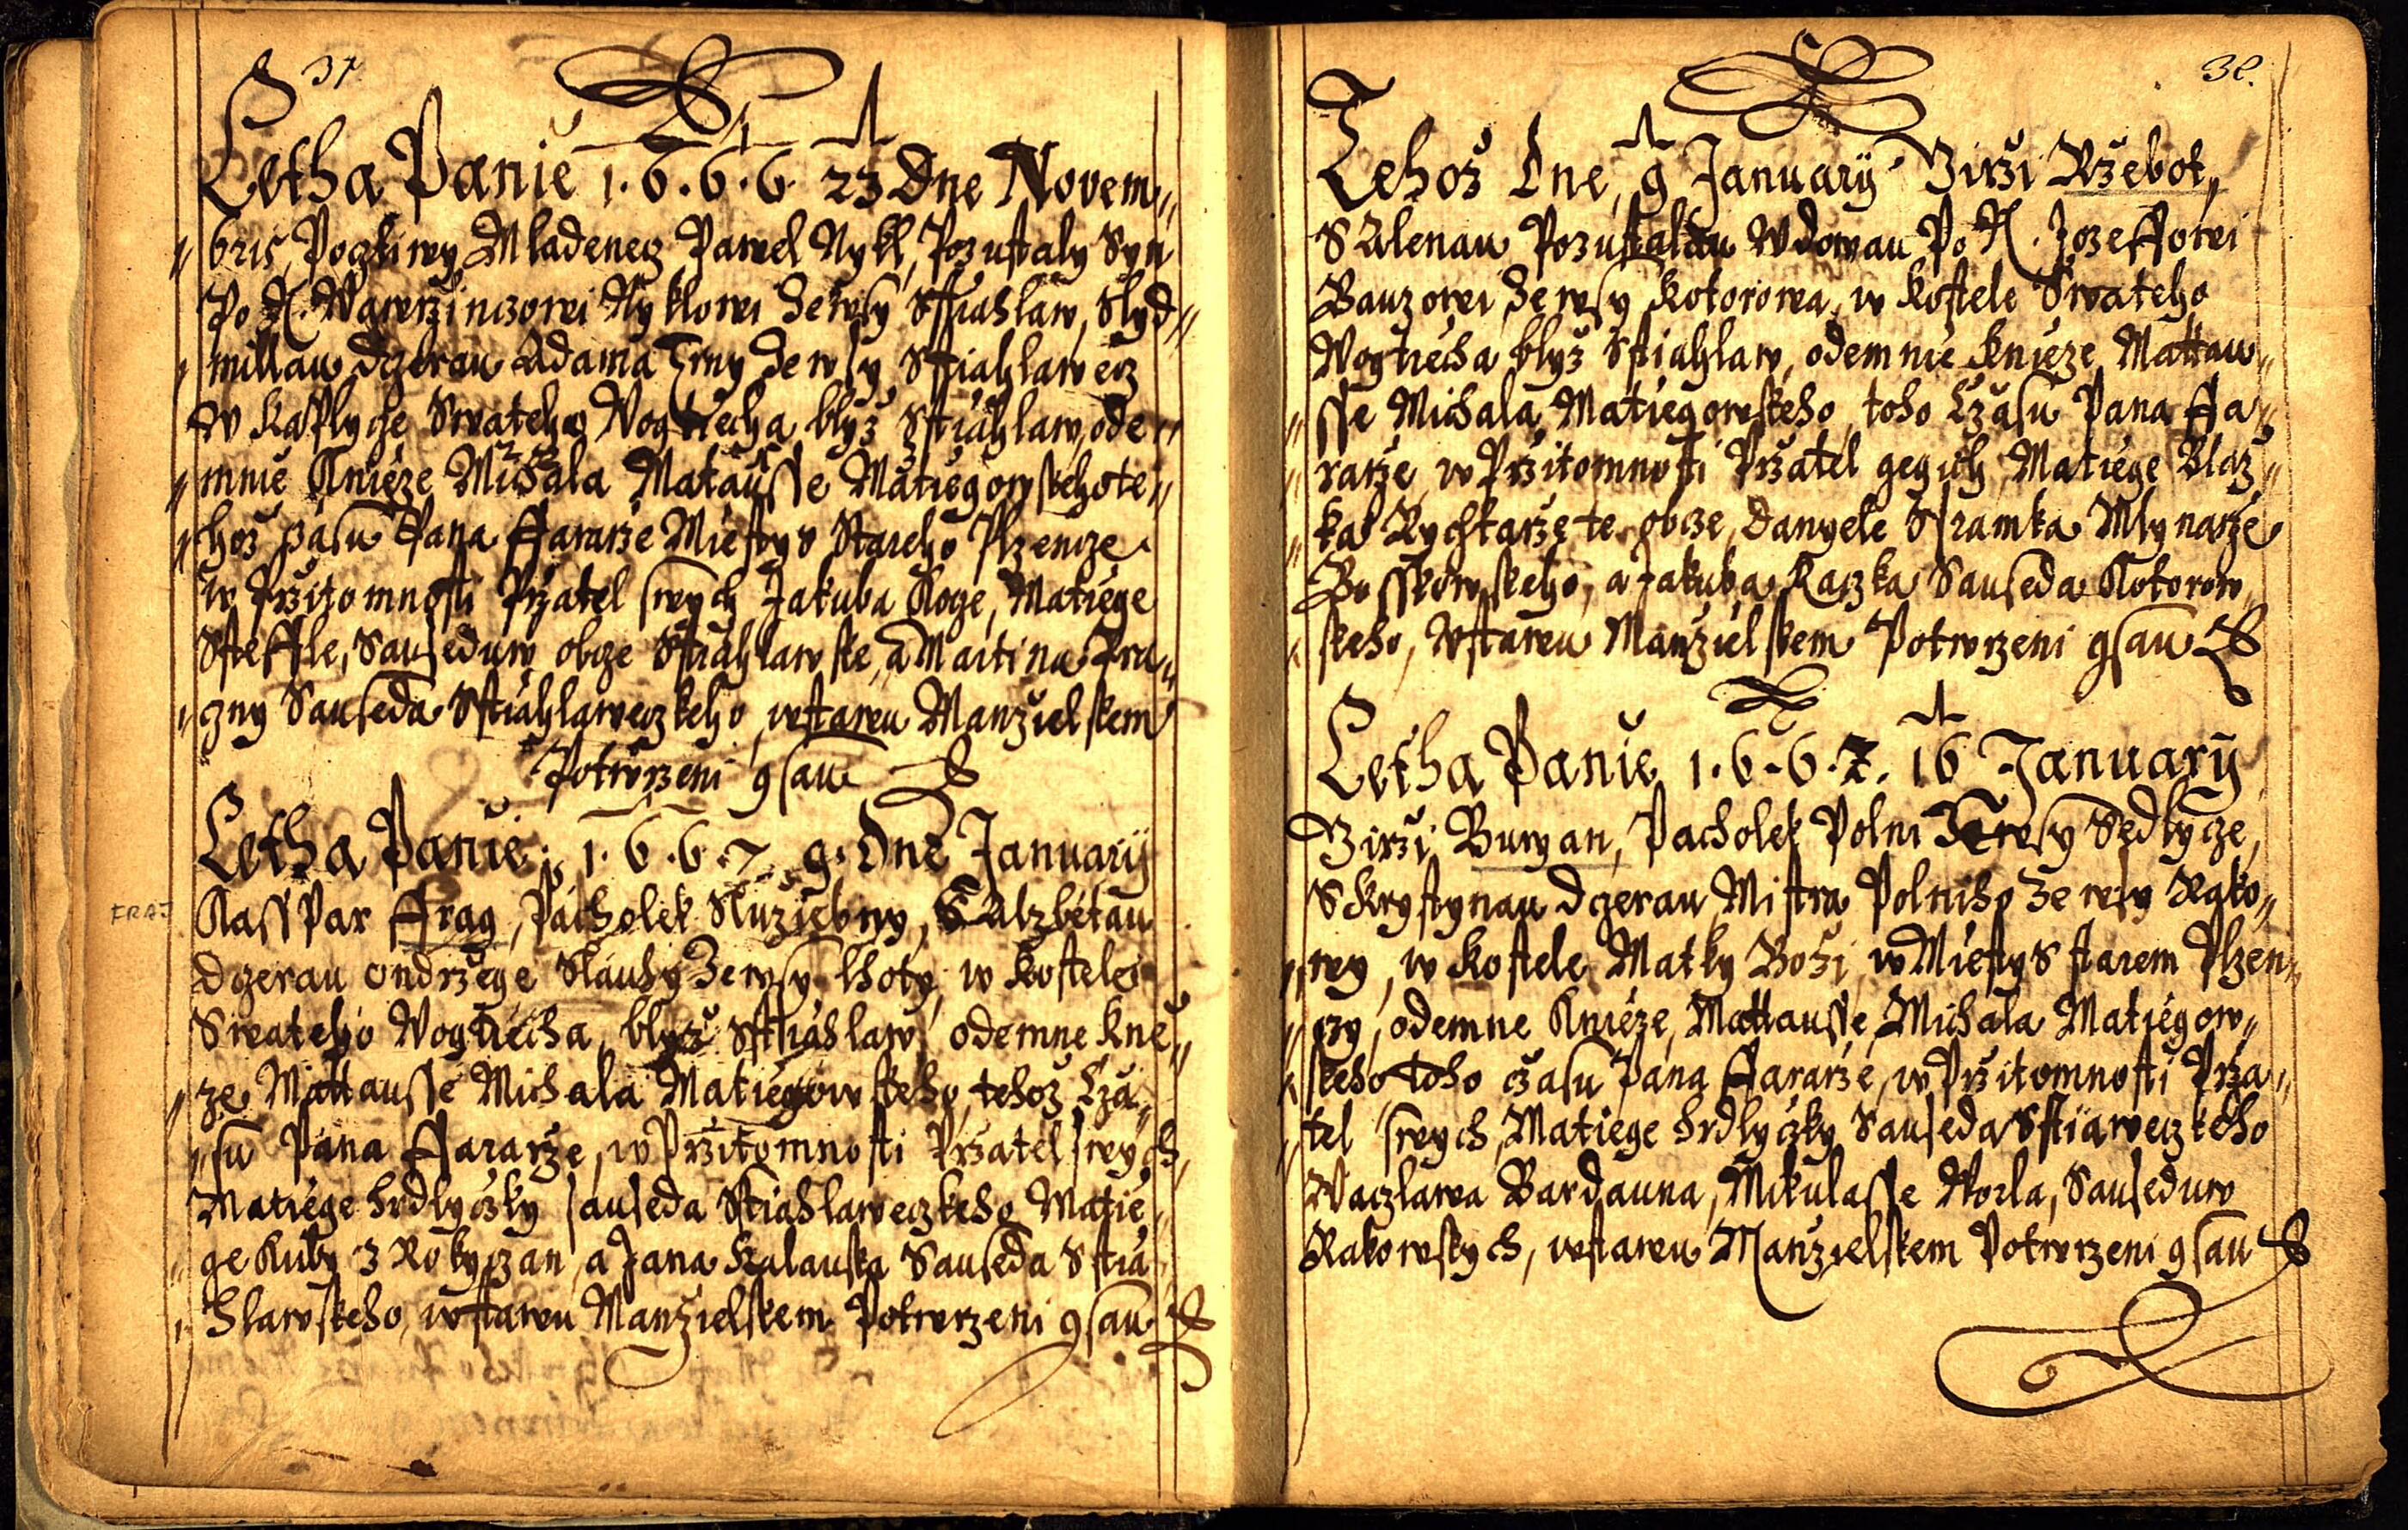 37
Letha Panie 1.6.6.6. 23 Dne Novem„
„bris, Pocztiwy Mladenecz Pawel Nykl, Pozustaly Syn
Po N. Wawrzinczowi Nyklowi Ze wsy Sstiahlaw, S Lyd„
„millau dczerau Adama Ze wsy Sstiahlawecz
w Kaplycze Swateho Wogtiecha blyz Sstiahlaw, ode„
„mnie Knieze Michala Matausse Matiegowskeho te„
„hoz czasu Pana Fararze Miestys Stareho Plzencze
w Przitomnosti Przatel swych Jakuba Matiege
Steffle, Sauseduw obcze Sstiahlawske, a Martina
„czny Sauseda Sstiahlaweczkeho, wstawu Manzielskem
Potwrzeni gsau
Letha Panie 1.6.6.7 9. Dne January
FRAJ
Kasspar Frag, Pacholek Sluziebny, S Alzbietau
dczerau Ondrzege Slauhy Ze wsy Lhoty, w Kostele
Swateho Wogtiecha, blyz Sstiahlaw, odemne Kne„
„ze Mattausse Michala Matiegowskeho, tehoz Cza„
„su Pana Fararze, w Przitomnosti Przatel swych,
Matiege Hrdlyczky sauseda Sstiahlaweczkeho, Matie„
„ge Kuby z Rokyczan, a Jana Kalauska Sauseda Sstia„
„hlawskeho, wstawu Manzielskem Potwrzeni gsau
38.
Tehoz Dne, 9 January Girzi Rzebot„
S Alenau Pozustalau Wdowau Po N. Jozeffowi
Bauzowi Ze wsy Kotorowa, w Kostele Swateho
Wogtiecha blyz Sstiahlaw, odemnie Knieze Mattau„
„sse Michala Matiegowskeho, toho Czasu Pana Fa„
„rarze, w Przitomnosti Przatel gegich, Matiege Blaz„
„ka Rychtarze te obcze, Danyele Sramka Mlynarze
a Jakuba Kaczka Sauseda Kotorow„
„skeho, wstawu Manzielskem Potwrzeni gsau
Letha Panie 1.6.6.7. 16 January
Girzi Buryan, Pacholek Polni Ze wsy Sedlycze,
S Krystynau dczerau Mistra Polniho Ze wsy Rako„
„wy, w Kostele Matky Bozi, w Miestys starem Plzen„
„czy, odemne Knieze, Mattausse Michala Matiegow„
„skeho, toho czasu Pana Fararze, w Przitomnosti Prza„
„tel swych, Matiege Hrdlyczky Sauseda Sstiaweczkeho
Waczlawa Bardauna, Mikulasse Horla, Sauseduw
Rakowskych, wstawu Manzielskem Potwrzeni gsau